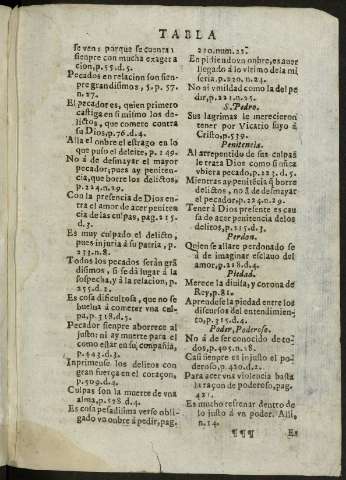 TABLA
se ven; porque se cuentan
sienpre con mucha exagera
cion, p.55.d.5.
Pecados en relacion son sien-
pre grandisimos, 5. p. 57.
n.27.
El pecador es, quien primero
castiga en si mismo los de-
lictos, que comete contra
su Dios, p.76.d.4.
Alla el onbre el estrago en lo
que puso el deleite, p.149.
No á de desmayar el mayor
pecador, pues ay peniten-
cia, que borre los delictos,
p.224.n.29.
Con la presencia de Dios en-
tra el amor de acer peniten
cia de las culpas, pag.215.
d.3.
Es muy culpado el delicto,
pues injuria á su patria, p.
233.n.8.
Todos los pecados serán grā
dismos, si se dá lugar á la
sospecha, y á la relacion, p.
255.d.2.
Es cosa dificultosa, que no se
buelua á cometer vna cul-
pa, p.318.d.5.
Pecador sienpre aborrece al
justo: ni ay muerte para el
como estar en su conpañia,
p.443.d.3.
Inprimense los delitos con
gran fuerça en el coraçon,
p.509.d.4.
Culpas son la muerte de vna
alma, p.528.d.4.
Es cosa pesadisima verse obli-
gado vn onbre á pedir, pag.
210.num.21.
En pidiendo vn onbre, es auer
llegado á lo vltimo de la mi
seria, p.220.n.23.
No ai vmildad como la del pe
dir, p.221.n.25.
S. Pedro.
Sus lagrimas le merecieron
tener por Vicario suyo á
Cristo, p.539.
Penitencia.
Al arrepentido de sus culpas
le trata Dios como si nūca
vbiera pecado, p.223.d.5.
Mientras ay penitēcia q̄ borre
delictos, no á de desmayar
el pecador, p.224.n.29.
Tener á Dios presente es cau
sa do acer penitencia de los
delitos, p.215.d.3.
Perdon.
Quien se allare perdonado se
á de imaginar esclauo del
amor, p.218.d.4.
Piedad.
Merece la diuisa, y corona de
Rey, p.81.
Aprendese la piedad entre los
discursos del entendimien-
to, p.315.d.4.
Poder, Poderoso.
No á de ser conocido de to-
dos, p.405.n.18.
Casi sienpre es injusto el po-
deroso, p.420.d.2.
Para acer vna violencia basta
la raçon de poderoso, pag.
421.
Es mucho refrenar dentro de
lo justo á vn poder. Alli,
n.14.
¶¶¶ Es